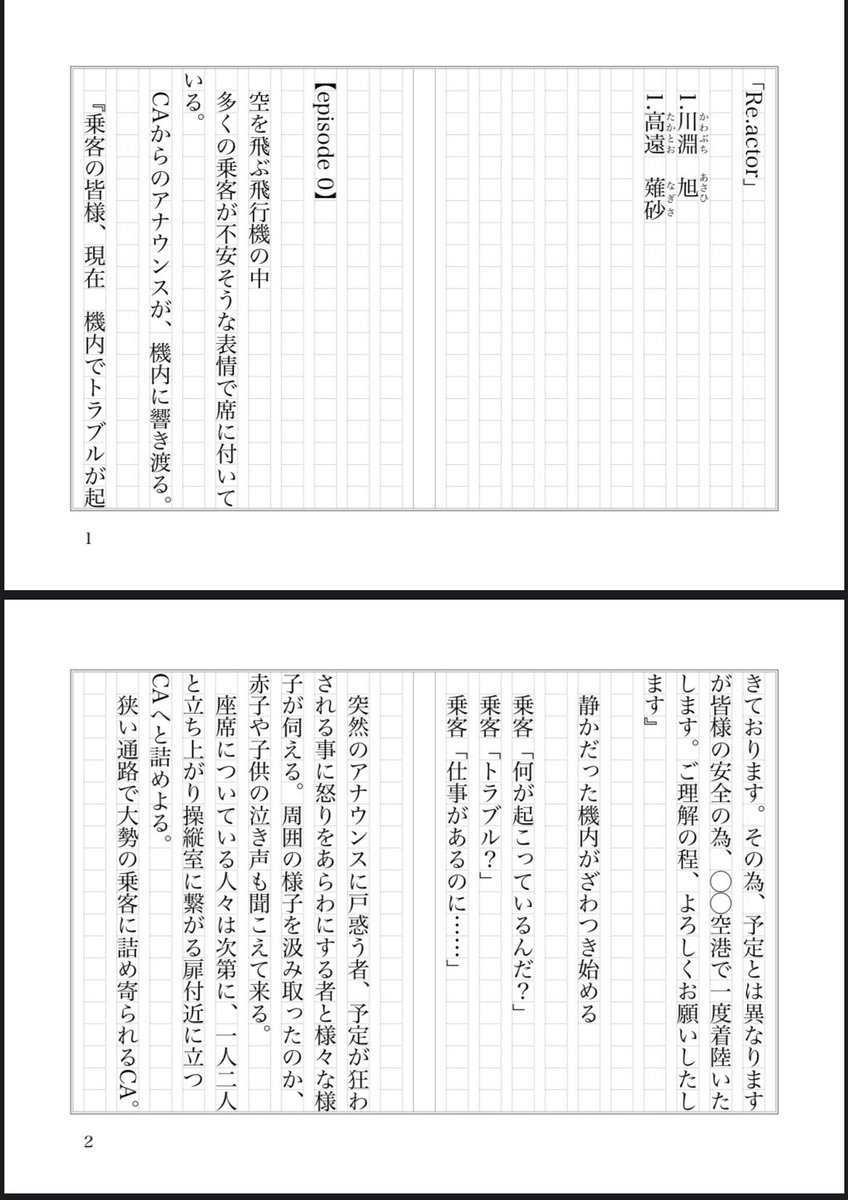 「Re.actor」
1.川淵　旭
かわぶち　あさひ
1.高遠　薙砂
たかとお　なぎさ
【episode 0】
空を飛ぶ飛行機の中
多くの乗客が不安そうな表情で席に付いて
いる。
CAからのアナウンスが、機内に響き渡る。
『乗客の皆様、現在　機内でトラブルが起
1
きております。その為、予定とは異なります
が皆様の安全の為、◯◯空港で一度着陸いた
します。ご理解の程、よろしくお願いしたし
ます』
静かだった機内がざわつき始める
乗客「何が起こっているんだ？」
乗客「トラブル？」
乗客「仕事があるのに……」
突然のアナウンスに戸惑う者、予定が狂わ
される事に怒りをあらわにする者と様々な様
子が伺える。周囲の様子を汲み取ったのか、
赤子や子供の泣き声も聞こえて来る。
座席についている人々は次第に、一人二人
と立ち上がり操縦室に繋がる扉付近に立つ
CAへと詰めよる。
狭い通路で大勢の乗客に詰め寄られるCA。
2